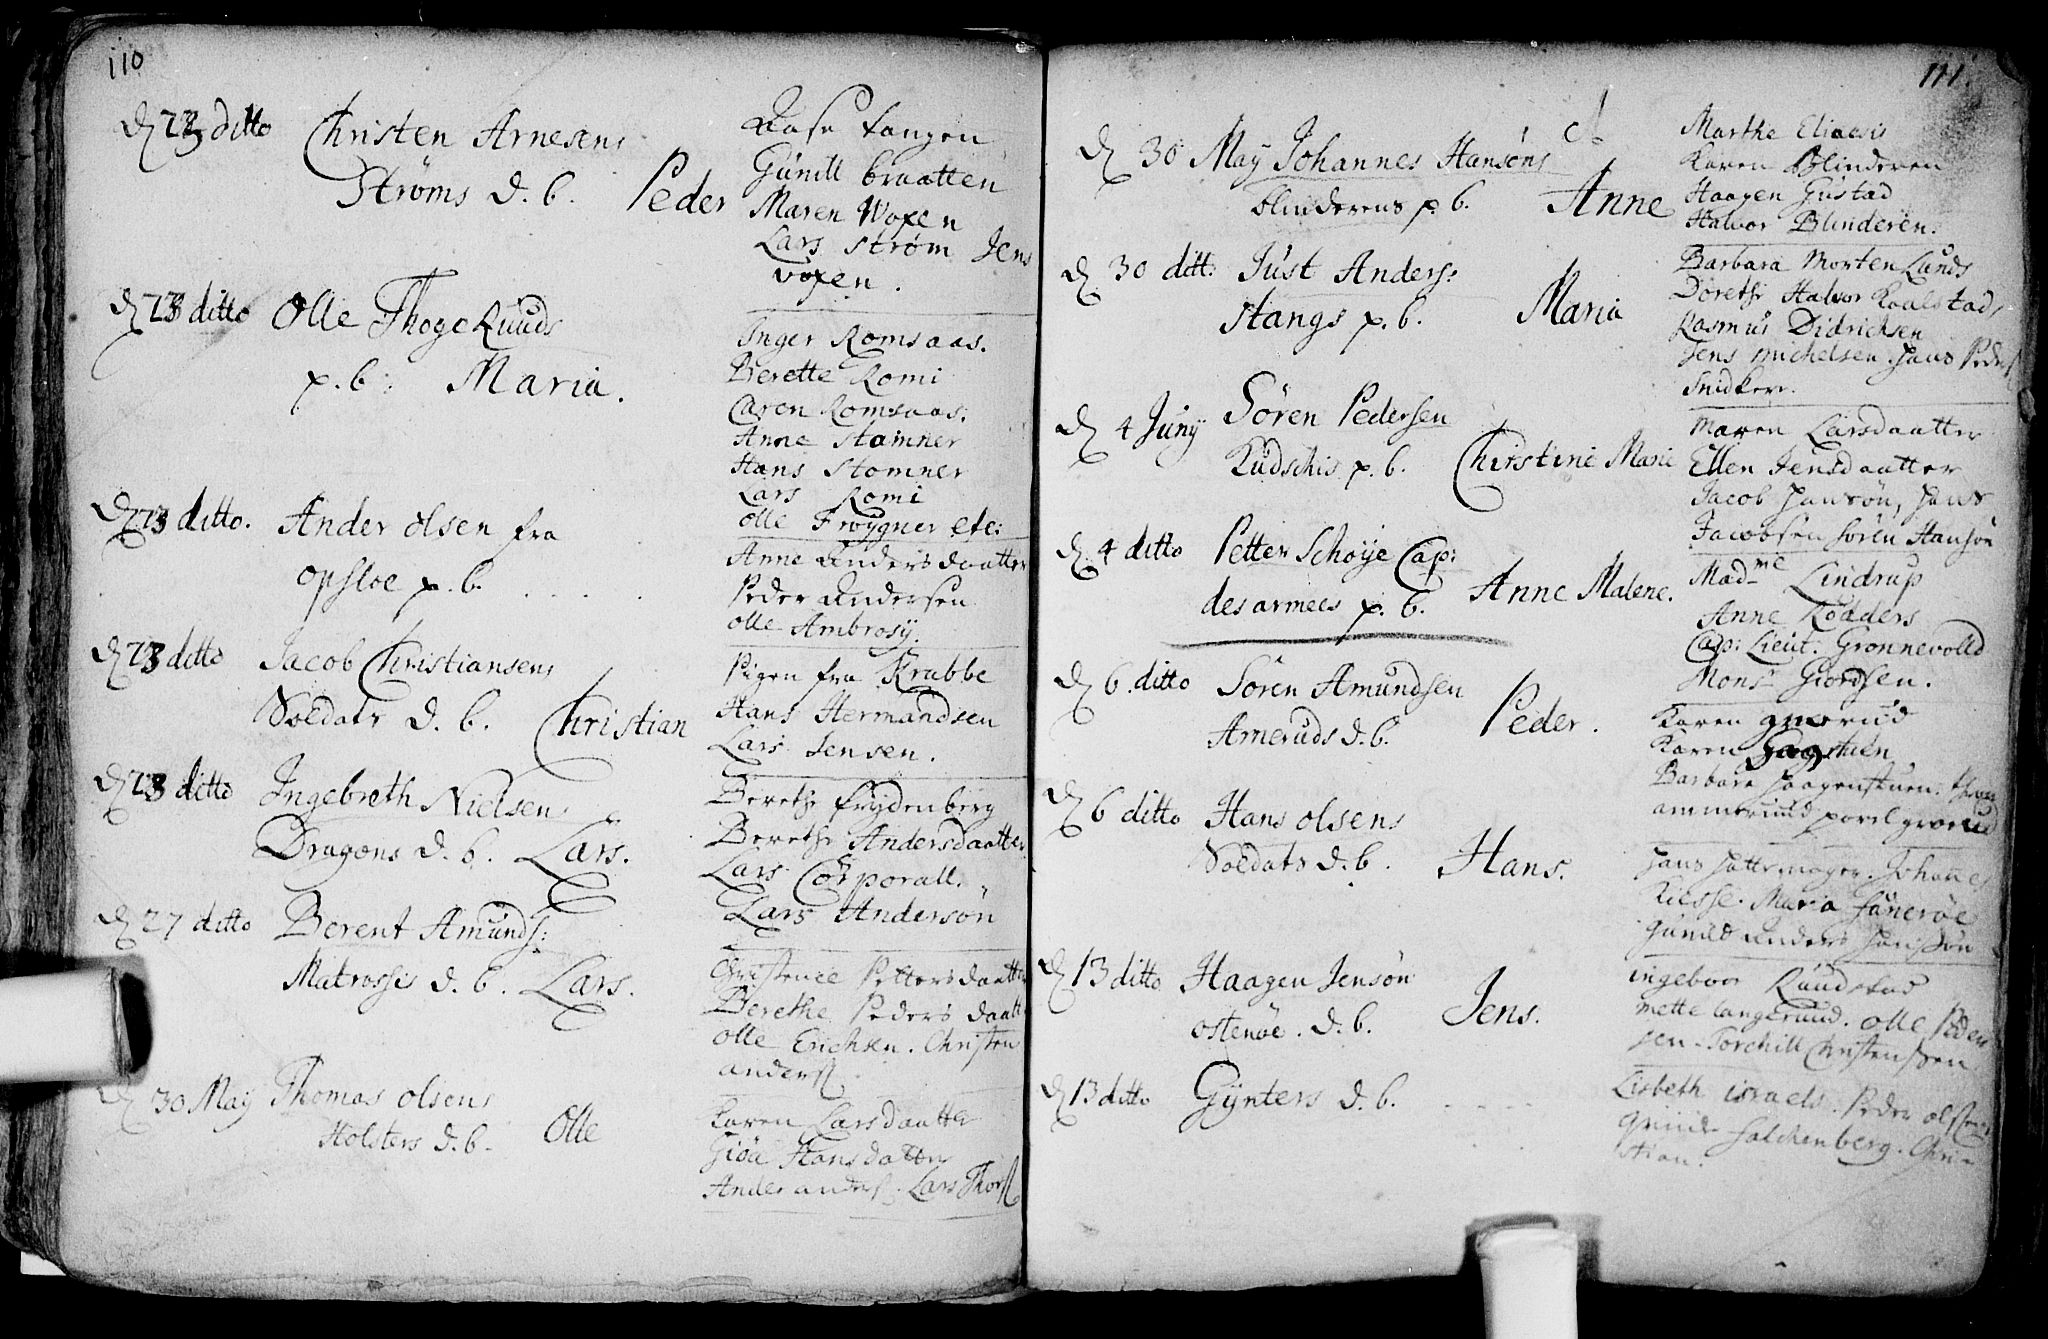 110
D 23 ditto Christen Arnesens
Strøms d. b. Peder
Gunill braatten
Maren Woxen
Lars Strøm Jens
voxen.
D 23 ditto Olle Thoge Ruuds
p. b: Maria.
Inger Romsaas.
Berette Romi
Caren Romsaas.
Anne Stamner
Hans Stomner
Lars Romi
olle Frøygner etc:
D 23 ditto. Ander olsen fra
opsloe p. b. . . . .
Anne Andersdaatter
Peder Andersen
olle Ambrosy.
D 23 ditto Jacob Christiansens
Soldats d. b. Christian
Pigen fra Krabbe
Hans Hermandsen
Lars Jensen.
D 23 ditto Ingebreth Nielsens
Dragons d. b. Lars.
Berethe frydenberg
Berethe Andersdaatter
Lars Corporall.
Lars Andersøn
D 27 ditto Berent Amunds:
Matrossis d. b. Lars.
Christence Pettersdaatter
Berethe Peders daatt
olle Erichsen. Christen
anders
D 30 May Thomas olsens
Holsters d. b. Olle
Karen Larsdaatter
Giøa Hansdatter
Ander anders. Lars Thors
111.
D 30 May Johannes Hansøns
blinderens p. b. Anne
Marthe Eliaesis
Karen Blinderen
Haagen Gustad
Halvor Blinderen.
D 30 ditt: Just Anders:
Stangs p. b. Maria
Barbara Morten Lunds
Dorethe Halvor Kaalstad,
Rasmus Didrichsen
Jens Michelsen. Hans Peders
Snidker.
D 4 Juny Søren Pedersen
Kudschis p. b. Christine Marie
Maren Larsdaatter
Ellen Jensdaatter
Jacob Hansøn, Hans
Jacobsen Søren Hansøn
D 4 ditto Petter Schøye Cap:
des armees p. b. Anne Malene.
Mad me Lindrup
Anne Rødders
Cap: Lieut. Grønnevolld
Mons Giordsen.
D 6 ditto Søren Amundsen
Ameruds d. b. Peder.
Karen
Karen
Barbara Haagenstuen.
ammeruud povel groerud
D 6 ditto Hans olsens
Soldats d. b. Hans.
Hans Hattemager. Johannes
Riesse. Maria Sanerøe
Gunild Anders Hanssøn
D 13 ditto Haagen Jensøn
ostenøe. d. b. Jens.
ingebor Ruudstad
mette langeruud. olle Peder
sen. Torchill Christenssen
D 13 ditto Gynters d. b. . . . .
Lisbeth israels. Peder
falchenberg. Chri-
stian.